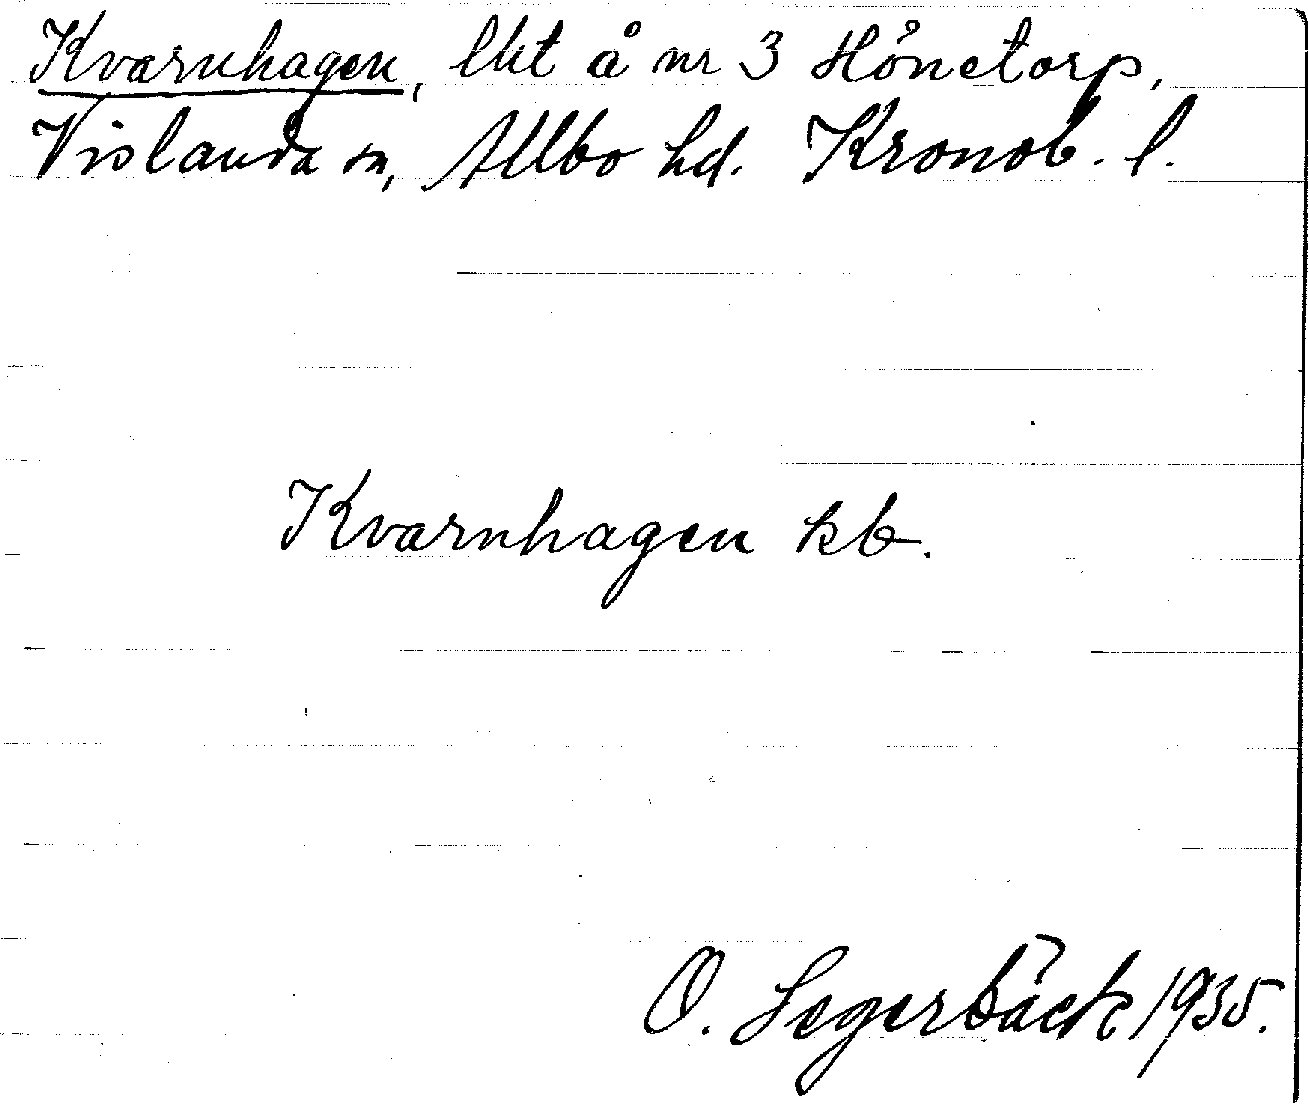 Kvarnhagen, lht å nr 3 Hönetorp,
Vislanda sn, Allbo hd. Kronob. l.
Kvarnhagen kb.
O. Segerbäck 1935.